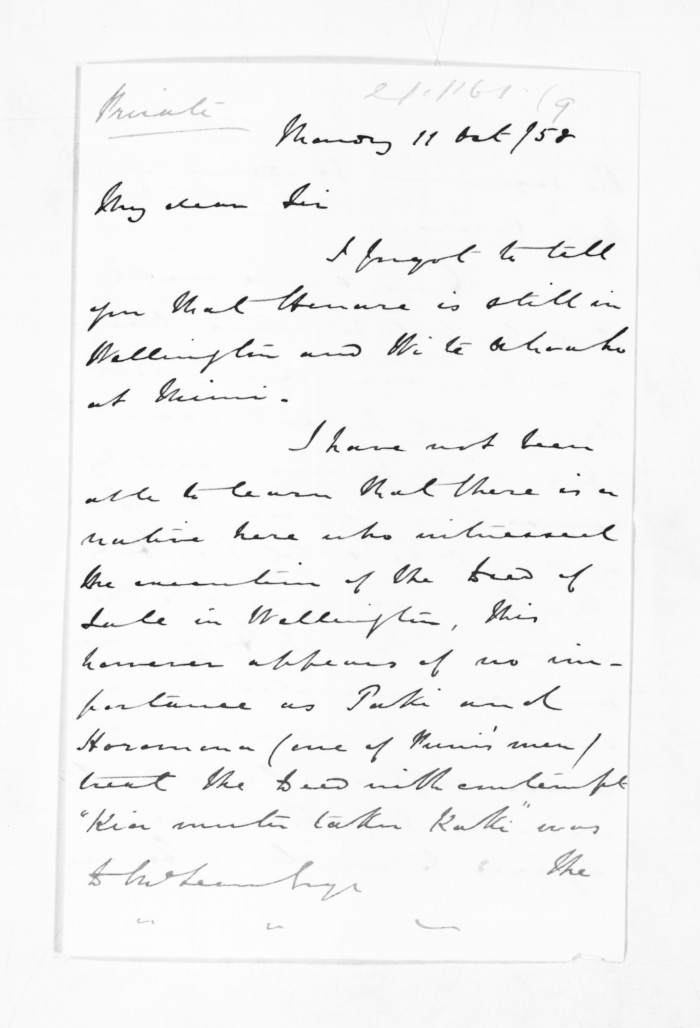 Private
Monday 11 Oct /58
My dear Sir
I forgot to tell
you that Henare is still in
Wellington and Wi te
at Mimi.
I have not been
able to learn that there is a
native here who witnessed
the execution of the Deed of
Sale in Wellington, this
however appears of no im-
portance as Paki and
Horomona (one of Puni's men)
treat the Deed with contempt
"Kia mutu taku Kaki" was
the
D McLean Esqr
" " "